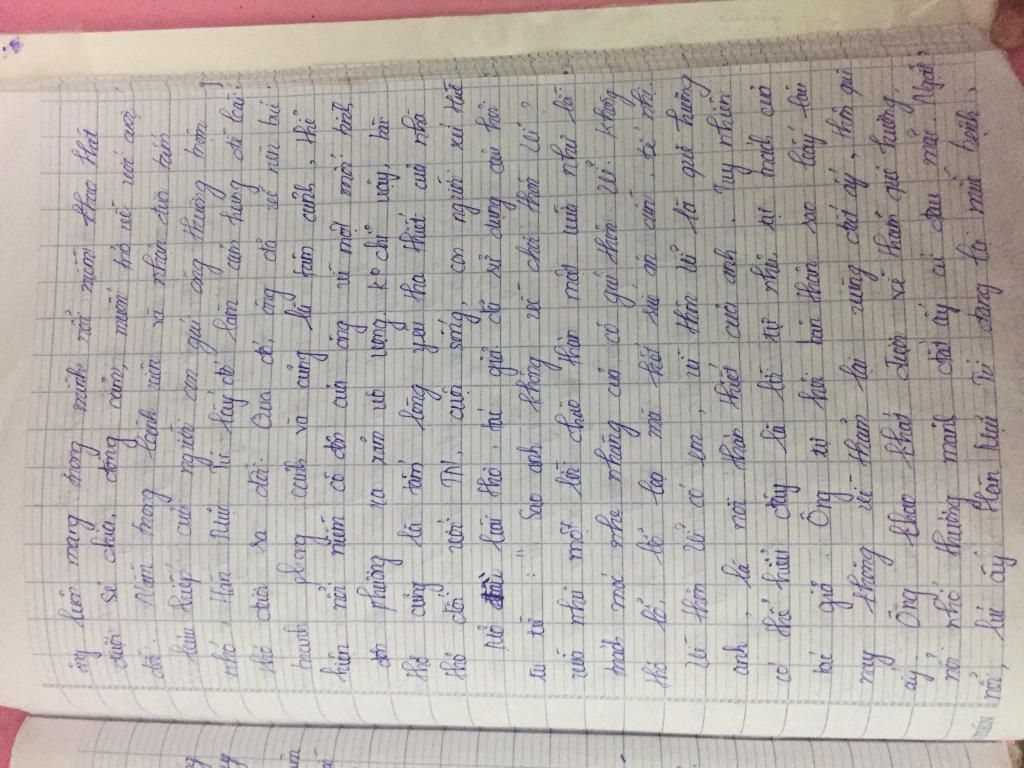 ông luôn mang trong mình nỗi niềm khao khát
được sẻ chia, đồng cảm, muốn trở về với cuộc
đời. Nằm trong bệnh viện và nhận được tấm
bưu thiếp của người con gái ông thường mộng
nhớ, Hàn Mặc Tử lấy đó làm cảm hứng để bài
thơ được ra đời. Qua đó, ông đã vẽ nên bức
tranh phong cảnh và cũng là tâm cảnh, thể
hiện nỗi niềm cô đơn của ông về một mối tình
đơn phương xa xăm vô vọng. K chỉ vậy, bài
thơ cũng là tấm lòng yêu tha thiết của nhà
thơ đối với TN, cuộc sống, con người xứ Huế
Mở lài thơ, tác giả đã sử dụng câu hỏi
tu từ : " Sao anh không về chơi thôn Vĩ ?
với như một lời chào thân mật vừa như lời
trách móc nhẹ nhàng của cô gái thôn Vĩ. Không
thơ lô, lô lao mà hết sức ân cần, tế nhị
Về thôn Vĩ có em, về thôn Vĩ là quê hương
anh, là nơi thân thiết của anh. Tuy nhiên
có thể hiểu đây là lời tự nhủ, sự trách của
tác giả. Ông tự hỏi bản thân sao bấy lâu
nay không về thăm lại vùng đất ấy, thôn quê
ấy. Ông khao khát được về thăm quê hương,
nơi nhớ thương mảnh đất ấy có đau mà. Ngặt
nỗi, lúc ấy Hàn Mặc Tử đang bị mắc bệnh,